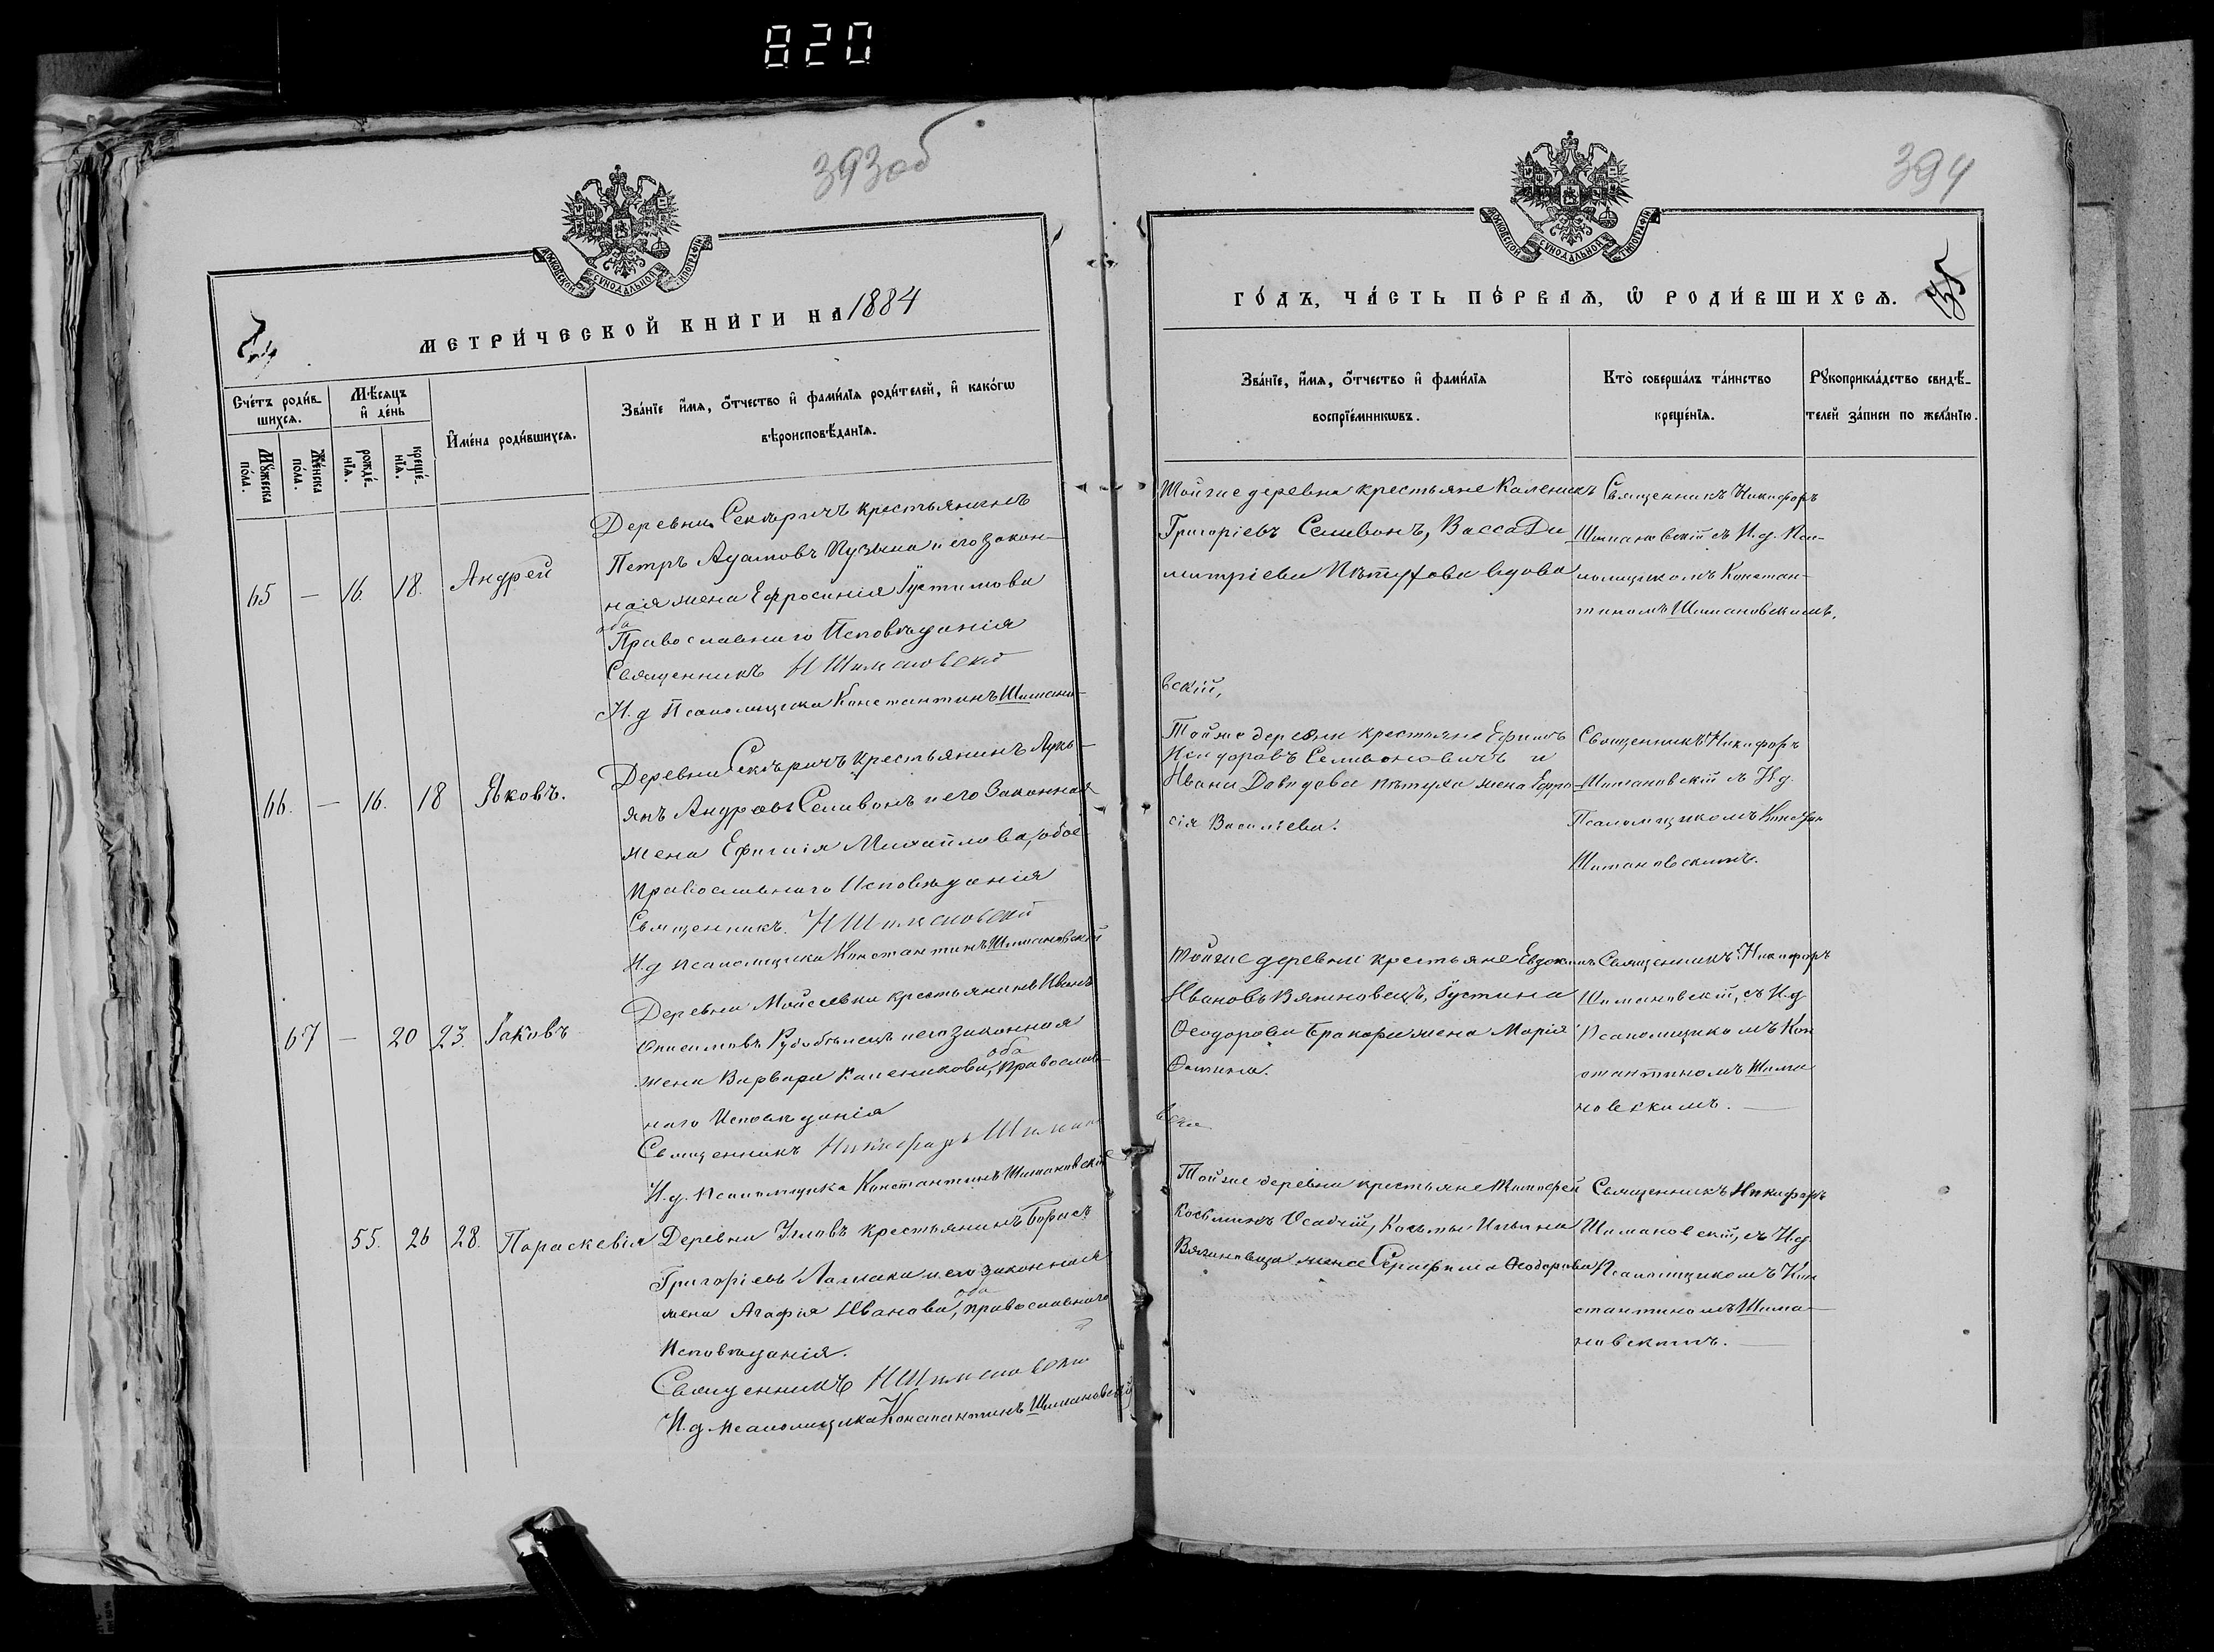 820
393об
МОСКОВСКОЙ СѴНОДАЛЬНОЙ ТИПОГРАФІИ
МЕТРИ́ЧЕСКОЙ КНИ́ГИ НА 1884
Сче́тъ роди́в-
шихсѧ.
Мѣ́сѧцъ
и҆ де́нь
И҆мена̀ роди́вшихсѧ.
Зва́нїе и҆́мѧ, ѻ҆́тчество и҆ фами́лїѧ роди́телей, и҆ како́гѡ
вѣроисповѣ́данїѧ.
Мꙋ́жеска по́ла.
Же́нска по́ла.
рожде́-нїѧ.
креще́-нїѧ.
Деревни Секѣричъ крестьянинъ
Петръ Адамовъ Пузына и его закон-
65 — 16. 18. Андрей
ная жена Ефросинія Іустимова
оба
Православнаго Исповѣданія
Священникъ Н Шимановскій
И.д Псаломщика Константинъ Шимано-
Деревни Секѣричъ крестьянинъ Лукь-
66. — 16. 18 Яковъ.
янъ Андреевъ Селивонъ и его Законная
жена Ефимія Михайлова, обое
Православнаго Исповѣданія
Священникъ. Н Шимановскій
И.д Псаломщика Константинъ Шимановскій
Деревни Мойсеевки крестьянинъ Иванъ
67 — 20 23. Іаковъ
Онисимовъ и его законная
оба
жена Варвара Каленикова, православ-
наго Исповѣданія
Священникъ Никифоръ Шимано
И.д. Псаломщика Константинъ Шимановскій
55. 26 28. Параскевія Деревни Углов крестьянинъ Борисъ
Григоріевъ и его законная
оба
жена Агафія Иванова, православнаго
Исповѣданія.
Священникъ Н Шимановскій
И.д Псаломщика Константинъ Шимановскій
394
МОСКОВСКОЙ СѴНОДАЛЬНОЙ ТИПОГРАФІИ
ГО́ДЪ, ЧА́СТЬ ПЕ́РВАѦ, Ѡ҆ РОДИ́ВШИХСѦ.
Зва́нїе, и҆́мѧ, ѻ҆́тчество и҆ фами́лїѧ
воспрїе́мникѡвъ.
Кто̀ соверша́лъ та́инство
креще́нїѧ.
Рꙋкоприкла́дство свидѣ́-
телей за́писи по жела́нїю.
Тойже деревни крестьяне Каленикъ
Григоріевъ Селивонъ, Васса Ди
митріева Пѣтухова вдова
Священникъ Никифоръ
Шимановскій съ И.д. Пса-
ломщикомъ Констан-
тиномъ Шимановскимъ.
вскій,
Тойже деревни крестьяне Ефимъ
Исидоровъ Селивоновичъ и
Ивана Давидова Пѣтуха жена Ефро-
сія Василіева.
Священникъ Никифоръ
Шимановскій съ И.д.
Псаломщикомъ Констан
Шимановскимъ.
Тойже деревни крестьяне Евдокимъ
Ивановъ Вячиновецъ, Іустина
Ѳеодорова жена Марія
Ѳомина.
Священникъ Никифоръ
Шимановскій, съ И.д
Псаломщикомъ Кон
стантиномъ Шима
новскимъ. —
Тойже деревни крестьяне Тимофей
Косьминъ Осадчій, Косьмы Ильина
Вячиновца жена Серафима Ѳеодорова
Священникъ Никифоръ
Шимановскій, съ И.д
Псаломщикомъ Кон
стантиномъ Шима-
новскимъ. —